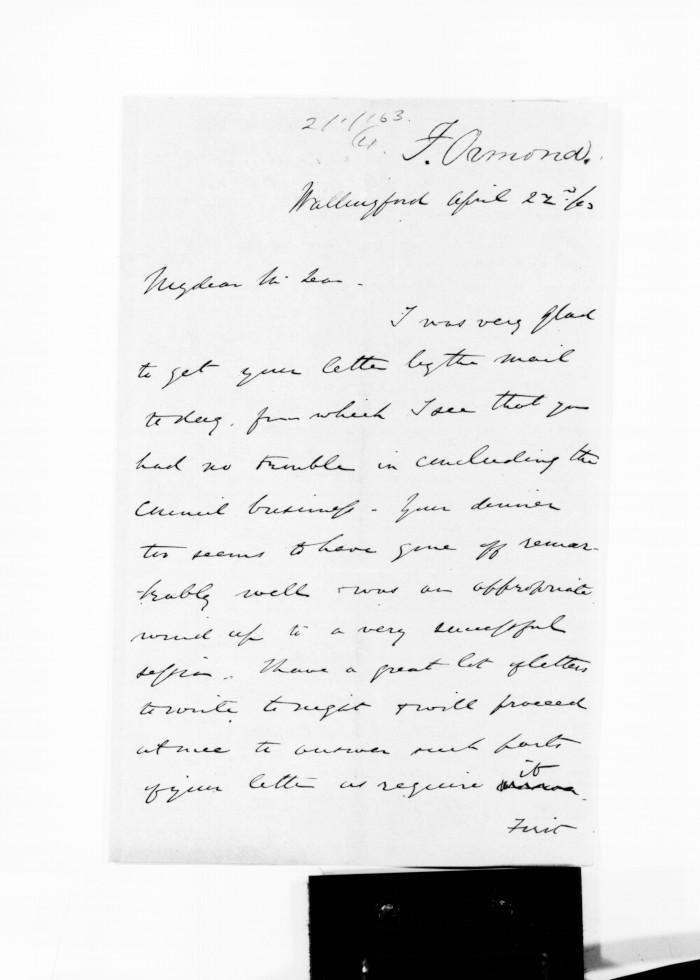 2/1/163.
(4).
F. Ormond.
Wallingford April 22nd/63
My dear Mr
I was very glad
to get your letter by the mail
to day. from which I see that you
had no trouble in concluding the
Council business - Your dinner
too seems to have gone off remar-
kably well & was an appropriate
wind up to a very successful
session. I have a great lot of letters
to write to night & will proceed
at once to answer such parts
of your letter as require it
First